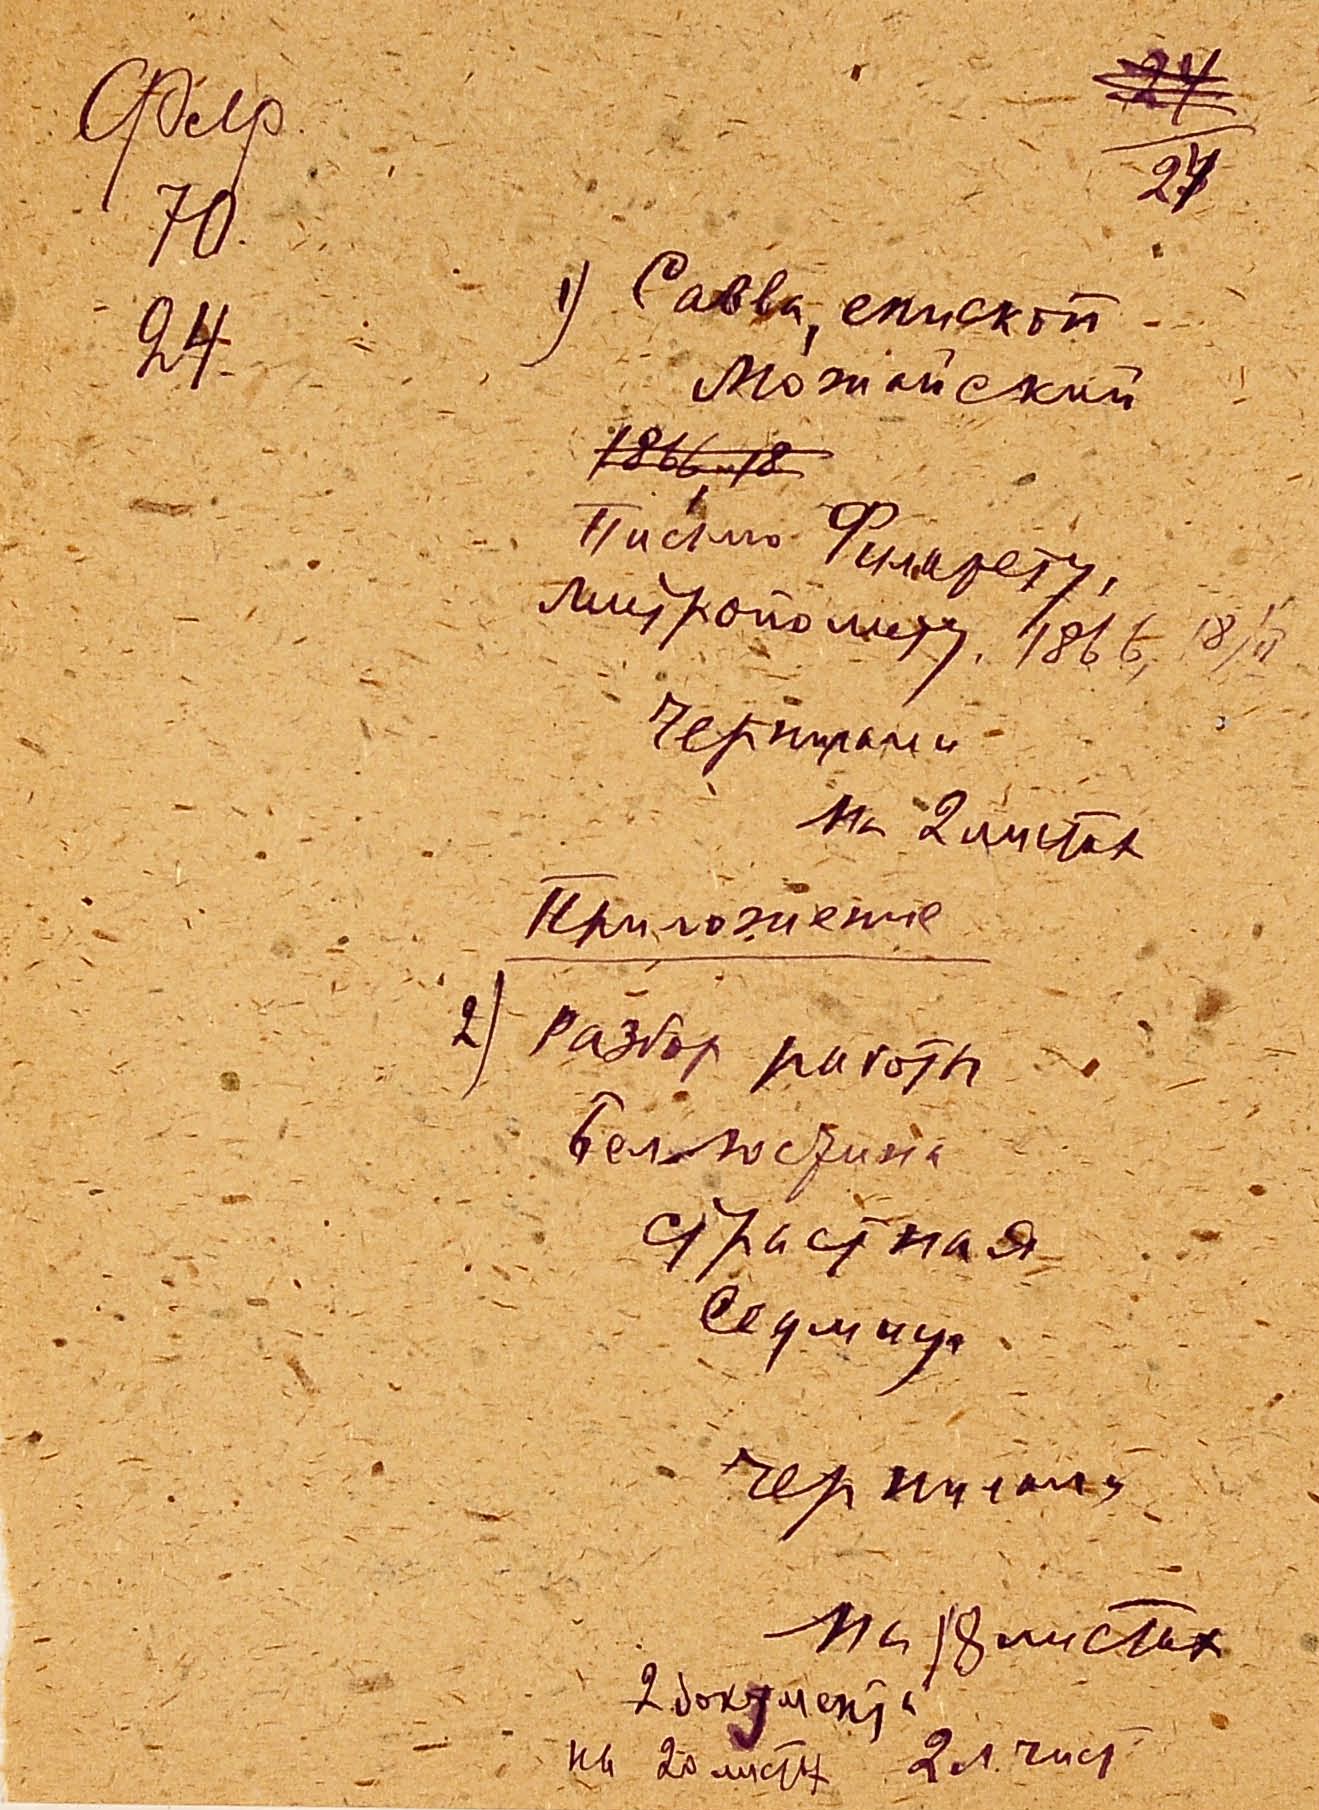 Ф элр
70.
24.
24
27
1) Савва, епископ
Можайский
1866, 18
Письмо Филарету,
митрополиту. 1866, 18/II
Чернилами
на 2 листах
Приложение
2) Разбор работы
Беллюстина
Страстная
Седмица
Чернилами
на 18 листах
2 документа
на 20 листах 2 л. чист